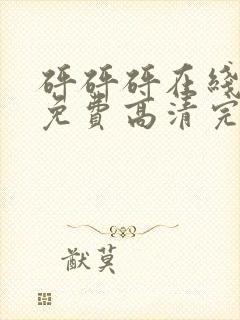 砰砰砰在线
免费高清完
猷莫